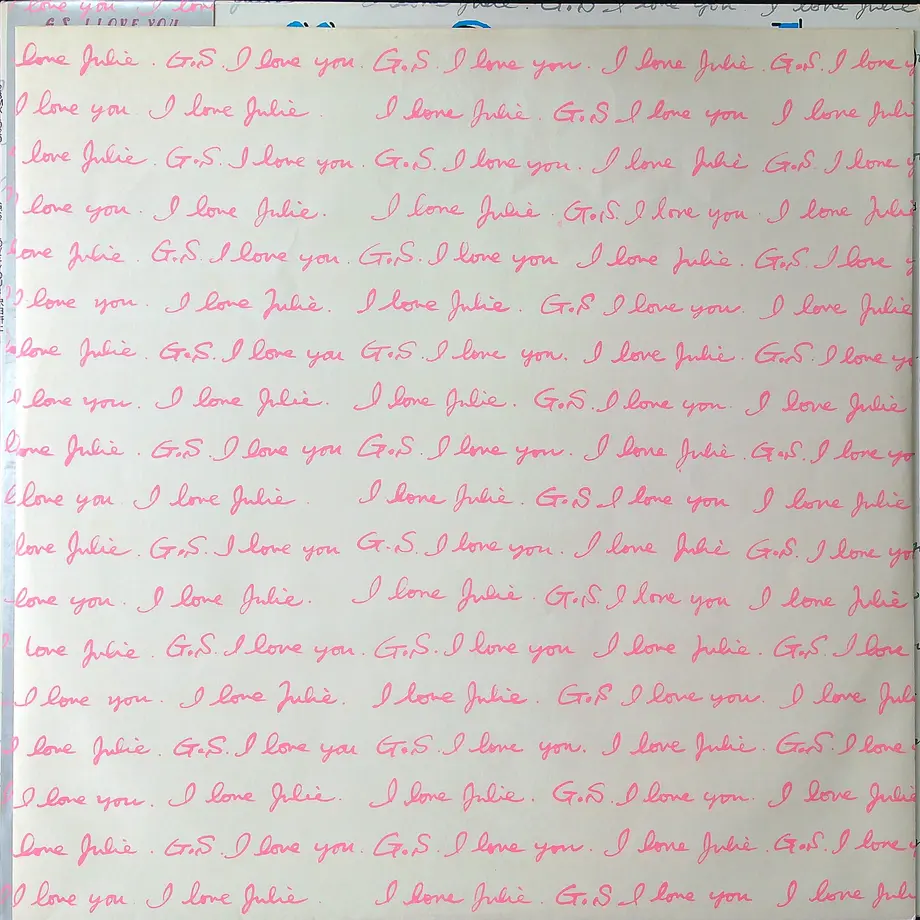 love you I love I love Julie. G.S I love you I love Julie
G.S. I LOVE YOU
love Julie. G.S. I love you. G.S. I love you. I love Julie. G.S. I love y
I love you I love Julie. I love Julie. G.S I love you I love Juli
love Julie. G.S. I love you. G.S. I love you. I love Julie G.S. I love y
I love you. I love Julie. I love Julie. G.S. I love you. I love Juli
love Julie. G.S. I love you. G.S. I love you I love Julie. G.S. I love y
I love you. I love Julie. I love Julie. G.S I love you. I love Julie
love Julie. G.S. I love you G.S. I love you. I love Julie. G.S. I love yo
I love you. I love Julie. I love Julie. G.S. I love you. I love Julie
love Julie. G.S. I love you G.S. I love you. I love Julie. G.S. I love yo
I love you I love Julie. I love Julie. G.S I love you I love Julie
love Julie. G.S. I love you G.S. I love you. I love Julie G.S. I love yo
love you. I love Julie. I love Julie. G.S. I love you I love Julie
love Julie. G.S. I love you. G.S. I love you I love Julie. G.S. I love
I love you. I love Julie. I love Julie. G.S I love you. I love Juli
I love Julie. G.S. I love you G.S. I love you. I love Julie. G.S. I love
I love you. I love Julie. I love Julie. G.S. I love you. I love Julie
love Julie. G.S. I love you. G.S. I love you. I love Julie. G.S. I love y
I love you I love Julie I love Julie. G.S I love you I love Juli